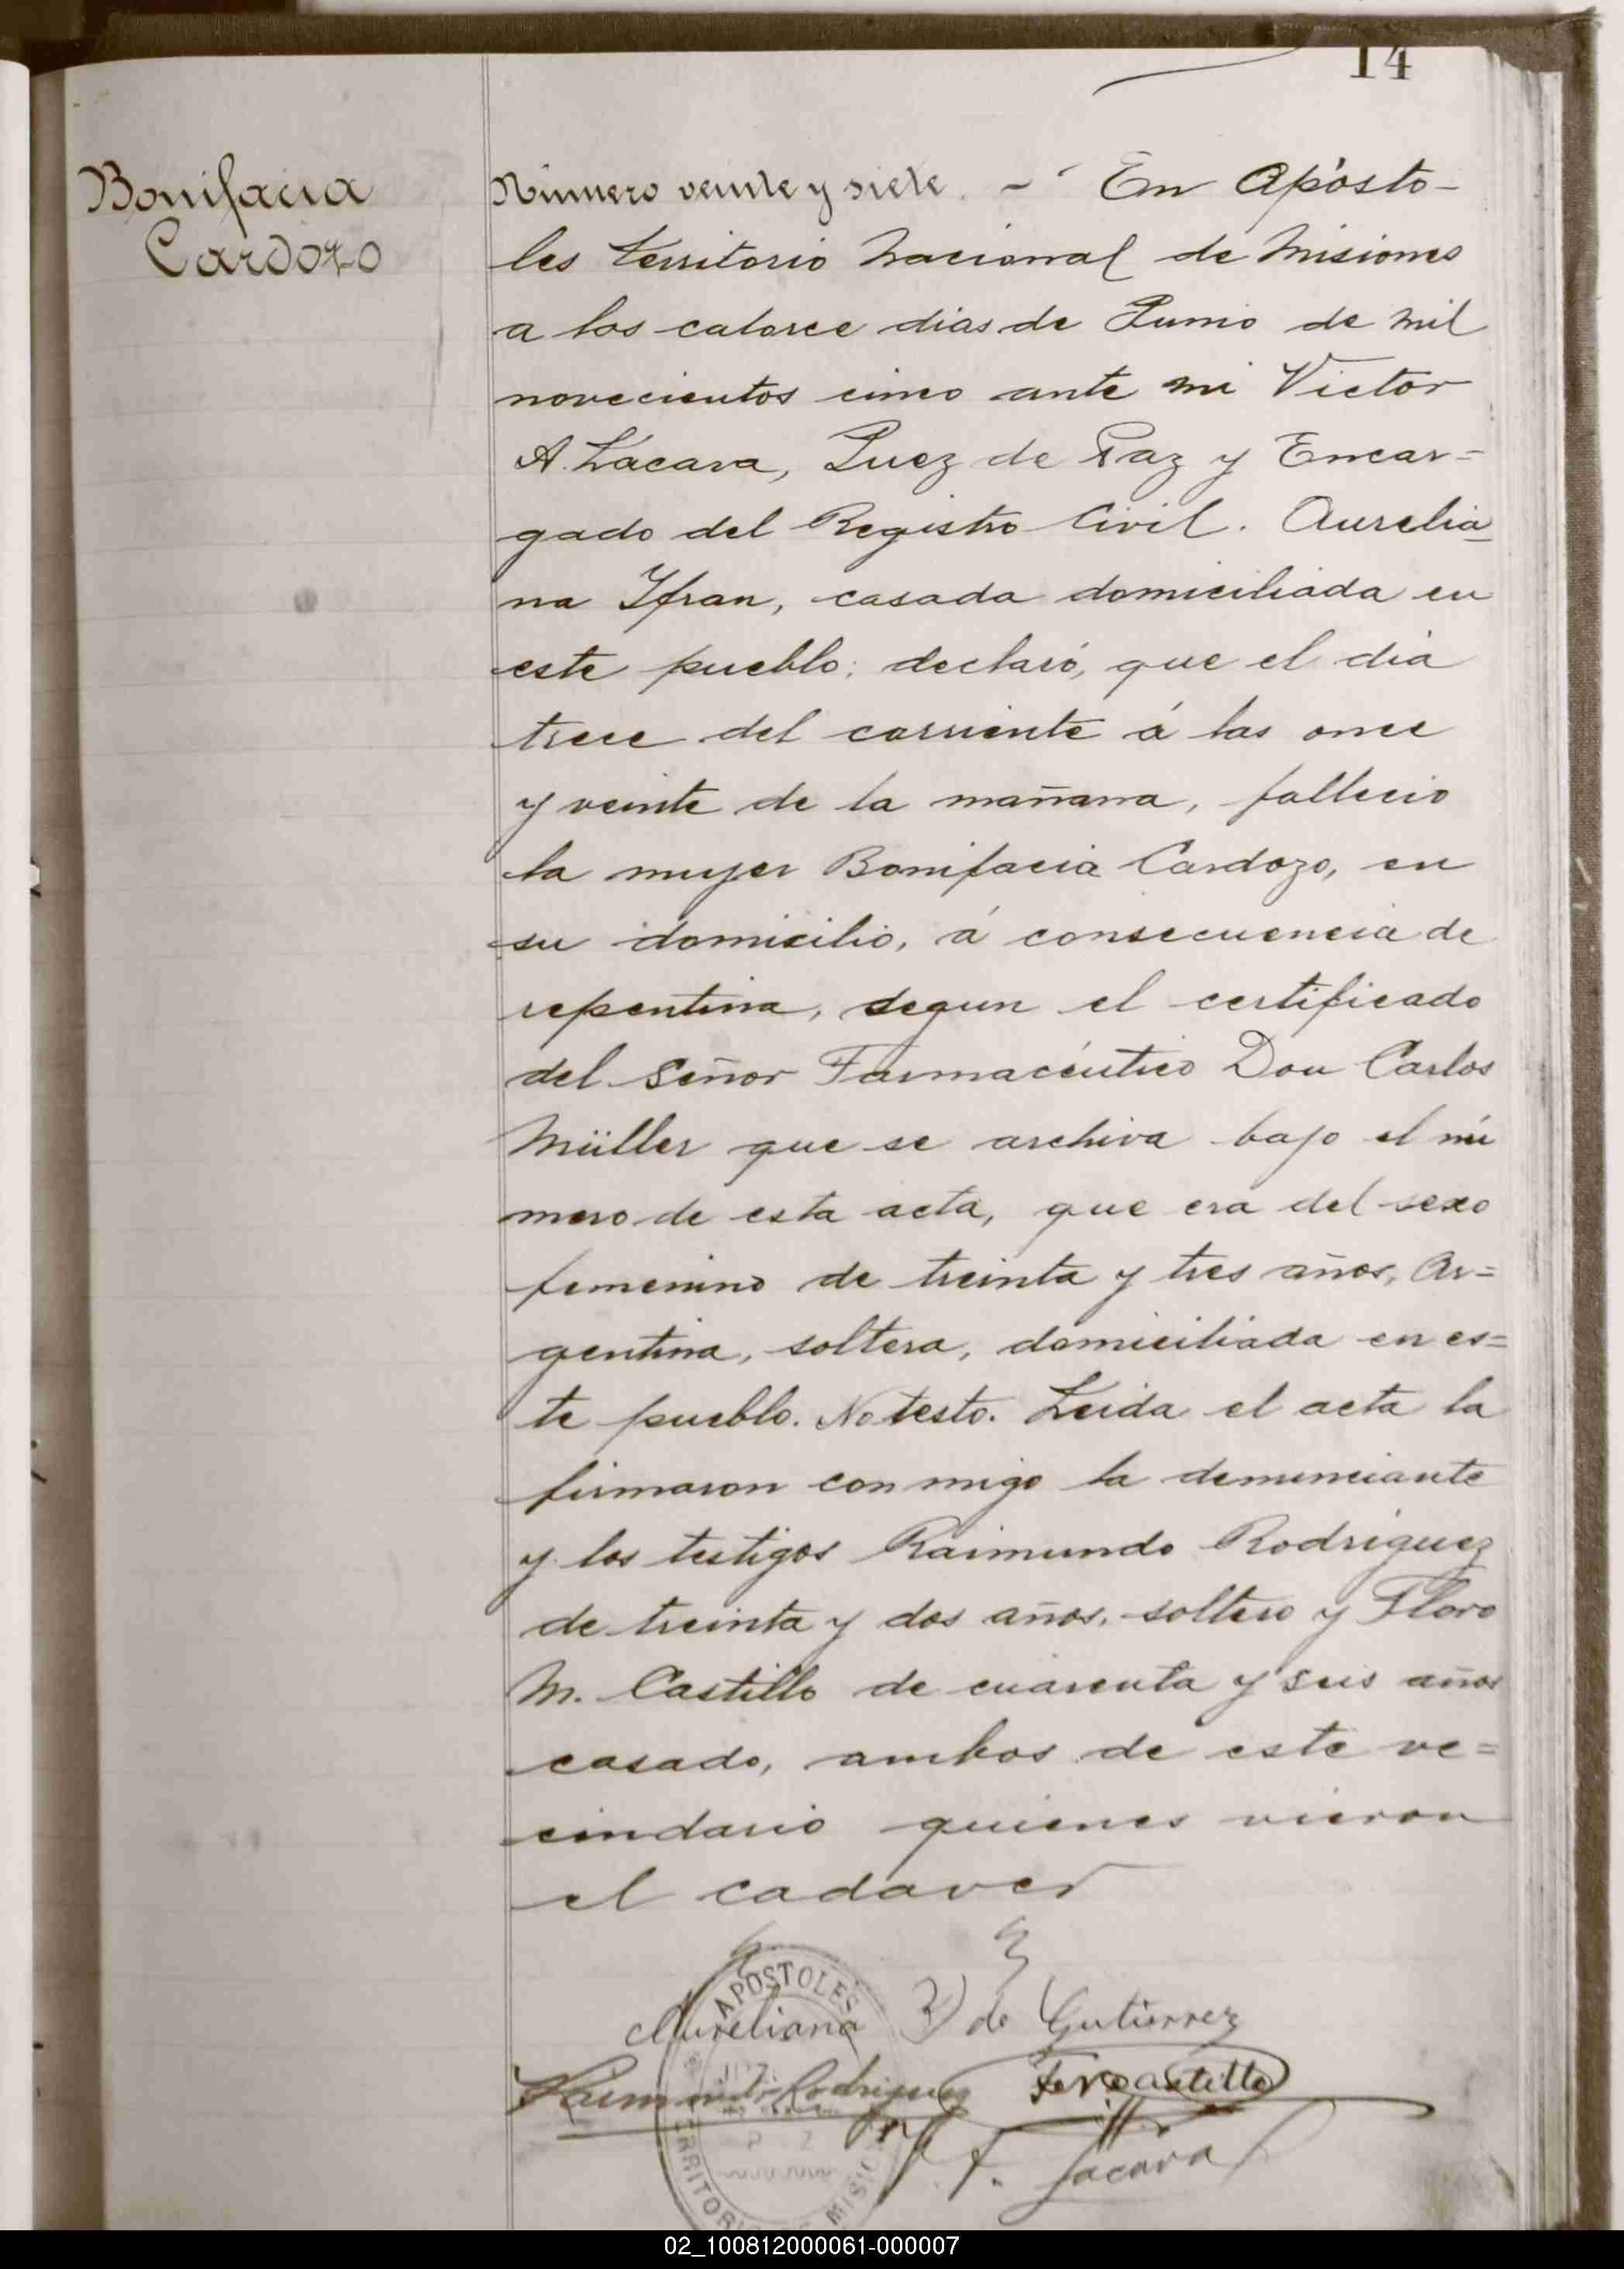 14
Bonifacia
Cardozo
Número veinte y siete. - En Apósto-
les Territorio Nacional de Misiones
a los catorce dias de Junio de mil
novecientos cinco ante mi Victor
A. Lácava, Juez de Paz y Encar=
gado del Registro Civil. Aurelia
na Ifran, casada domiciliada en
este pueblo; declaró, que el dia
trece del corriente á las once
y veinte de la mañana, fallecio
la mujer Bonifacia Cardozo, en
su domicilio, á consecuencia de
repentina, segun el certificado
del Señor Farmacéutico Don Carlos
Müller que se archiva bajo el nú
mero de esta acta, que era del sexo
femenino de treinta y tres años, Ar=
gentina, soltera, domiciliada en es=
te pueblo. No testo. Leida el acta la
firmaron con migo la denunciante
y los testigos Raimundo Rodriguez
de treinta y dos años, soltero y Floro
M. Castillo de cuarenta y seis años
casado, ambos de este ve=
cindario quienes vieron
el cadaver
APOSTOLES
Aureliana de Gutierrez
Raimundo Rodriguez Castillo
Lacava
02_100812000061-000007